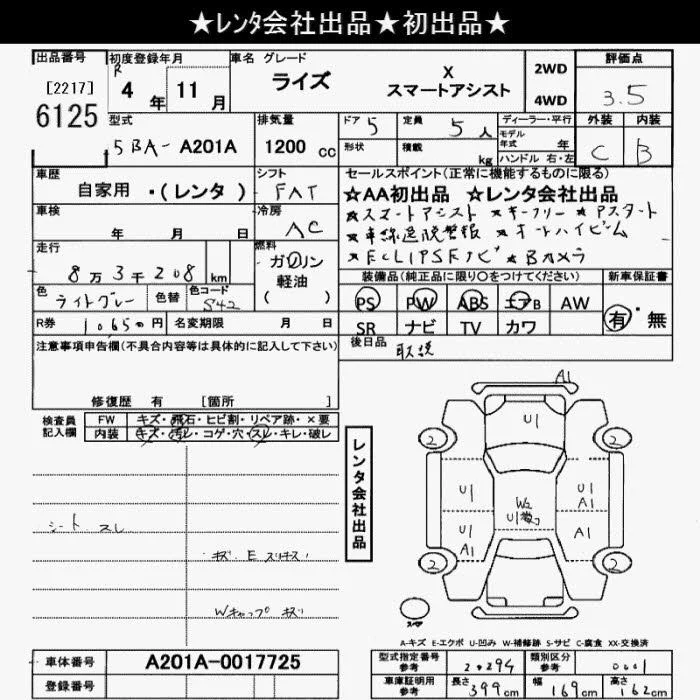 ★レンタ会社出品★初出品★
出品番号 初度登録年月 車名 グレード 評価点
[2217]
6125
R 4 年 11 月
ライズ
X
スマートアシスト
2WD
4WD
3.5
型式 5BA- A201A
排気量 1200 cc
ドア 5 定員 5人
形状 積載 kg
ディーラー・平行
モデル年式 年
ハンドル 右・左
外装 内装
C B
車歴 自家用 ・(レンタ)
シフト FAT
セールスポイント(正常に機能するものに限る)
★AA初出品 ☆レンタ会社出品
★スマートアシスト ★キーフリー ★Pスタート
★車線逸脱警報 ★オートハイビーム
★ECLIPSEナビ ★Bカメラ
車検 年 月 日
冷房 AC
走行 8万3千208 km
燃料 ガソリン
軽油
( )
色 ライトグレー 色替 色コード S42
装備品(純正品に限り〇をつけてください) 新車保証書
PS PW ABS エアB AW
SR ナビ TV カワ
有・無
R券 10,650円 名変期限 月 日
後日品 取説
注意事項申告欄(不具合内容等は具体的に記入して下さい)
修復歴 有 [箇所 ]
検査員記入欄
FW キズ・飛石・ヒビ割・リペア跡・×要
内装 キズ・汚レ・コゲ・穴・スレ・キレ・破レ
シート スレ
Wキャップ キズ
レンタ会社出品
A1
U1
2 2
U1 U1
A1
W2
U1
U1 A1
A1
2 2
A-キズ E-エクボ U-凹み W-補修跡 S-サビ C-腐食 XX-交換済
車体番号 A201A-0017725
登録番号
型式指定番号参考 20294 類別区分参考 0001
車庫証明用参考 長さ 399cm 幅 169cm 高さ 162cm